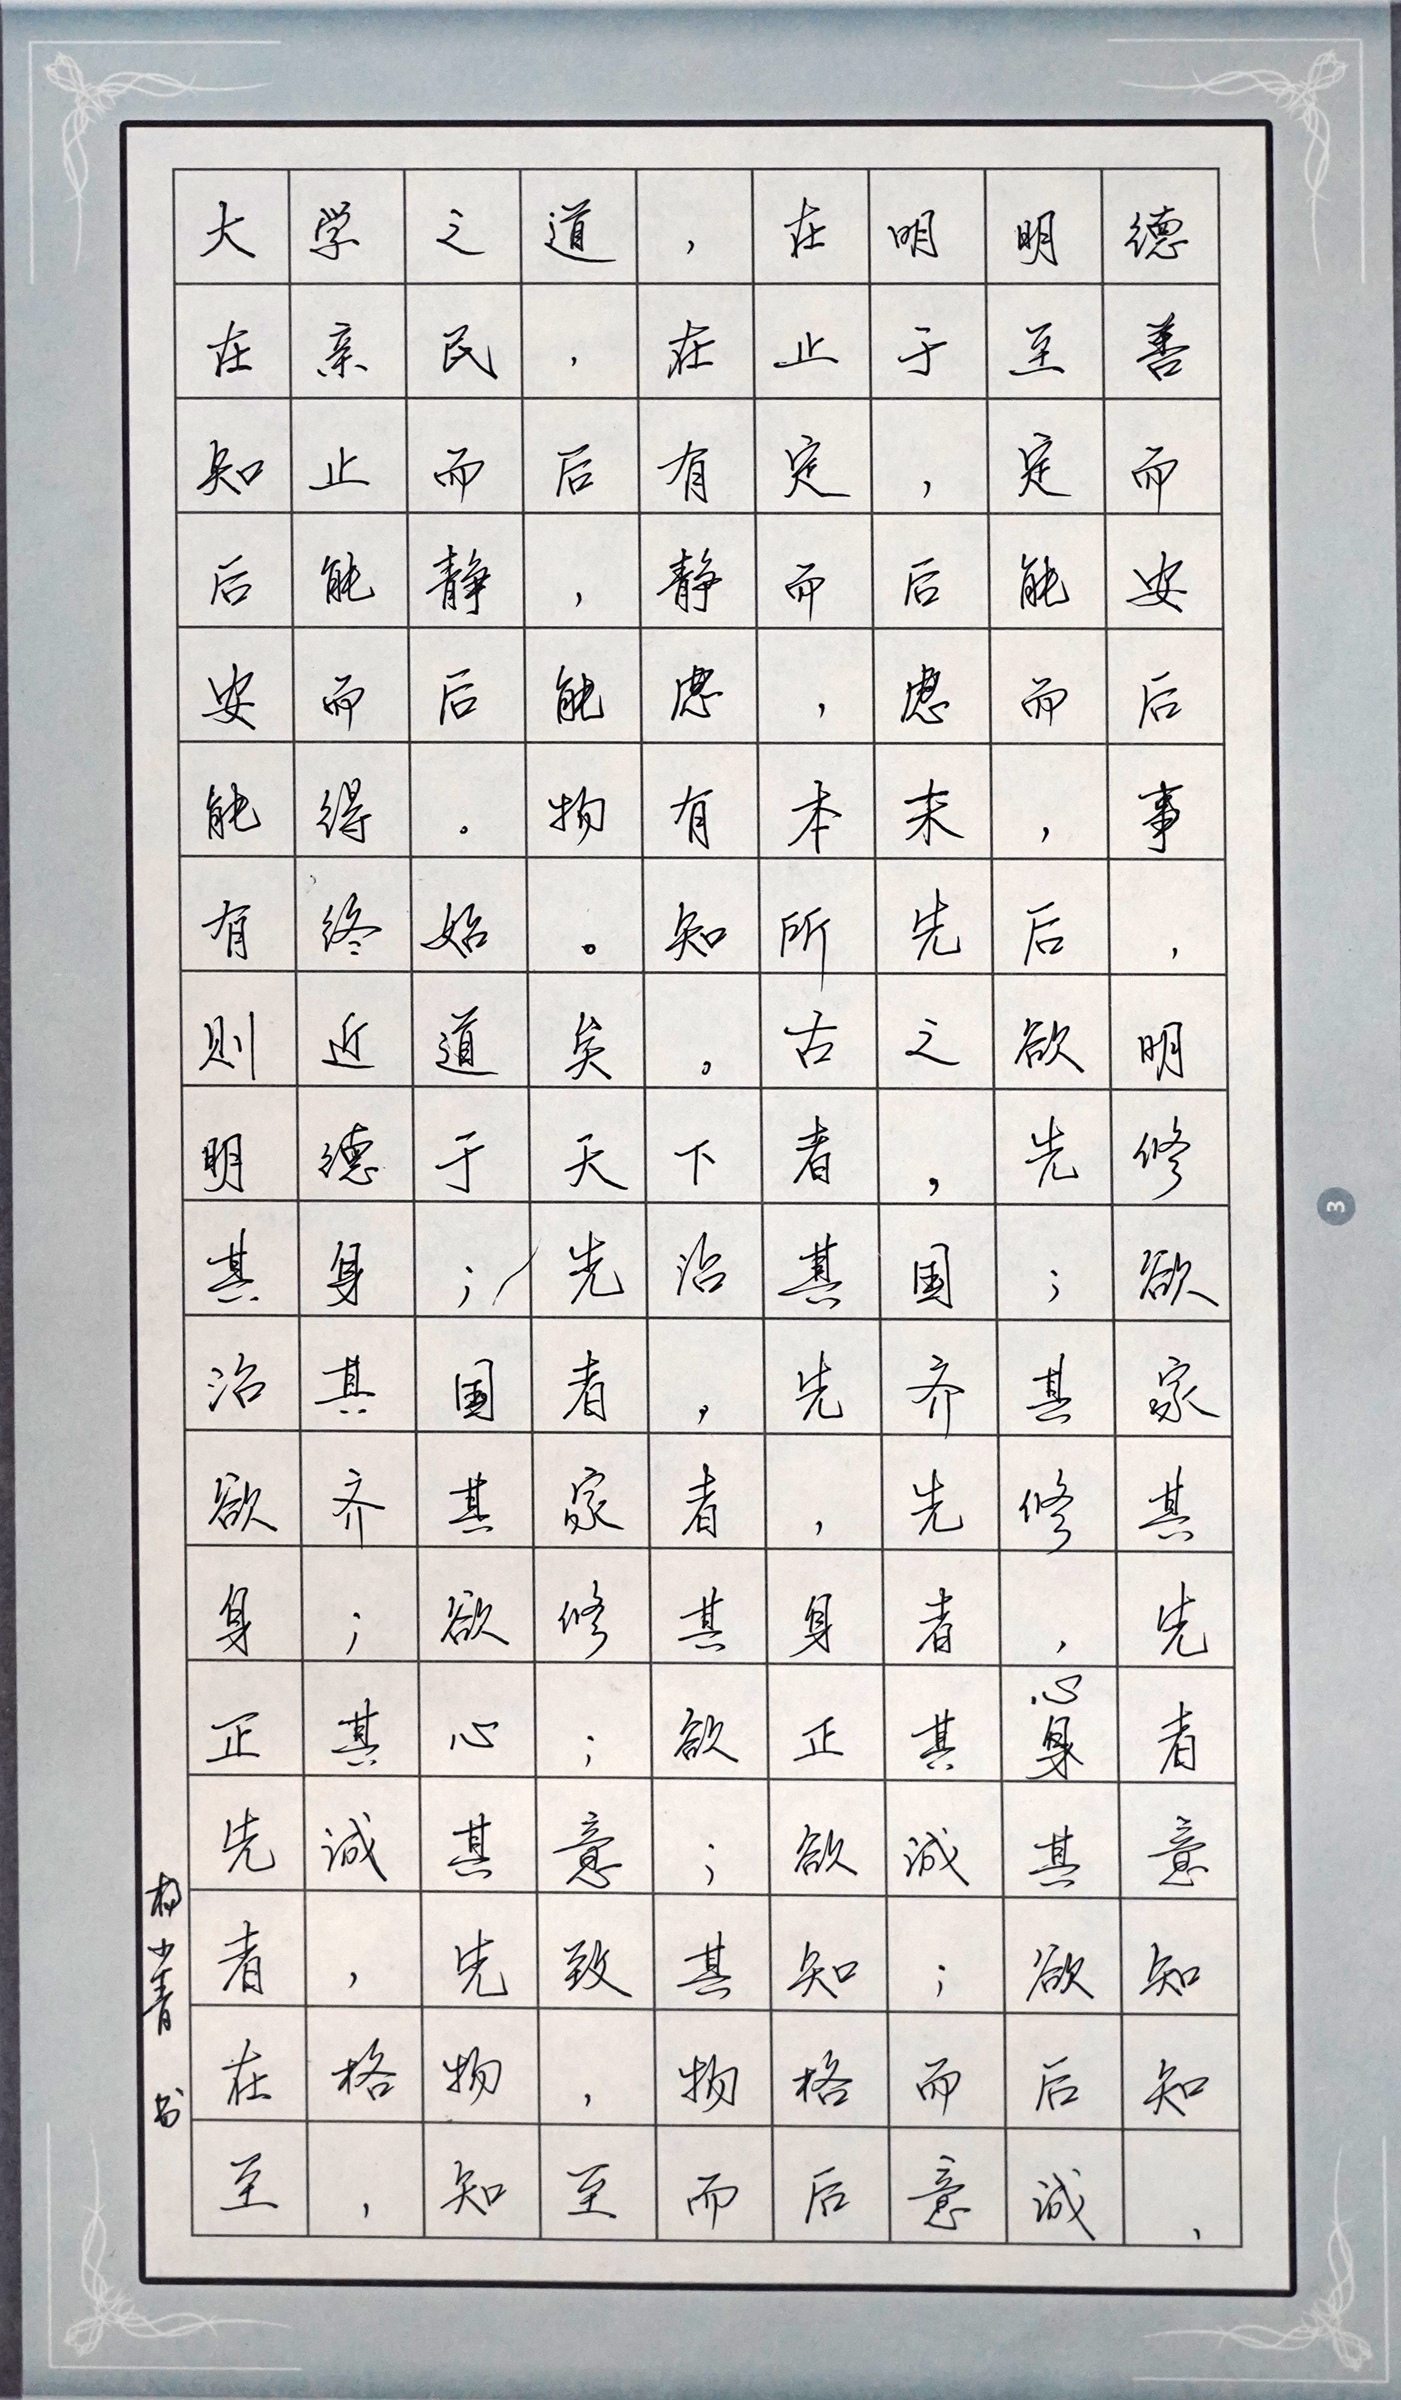 大学之道，在明明德
在亲民，在止于至善
知止而后有定，定而
后能静，静而后能安
安而后能虑，虑而后
能得。物有本末，事
有终始。知所先后，
则近道矣。古之欲明
明德于天下者，先修
其身；先治其国；欲
治其国者，先齐其家
欲齐其家者，先修其
身；欲修其身者，先
心
正其心；欲正其身者
先诚其意；欲诚其意
者，先致其知；欲知
在格物，物格而后知
至，知至而后意诚，
杨小青 书
3